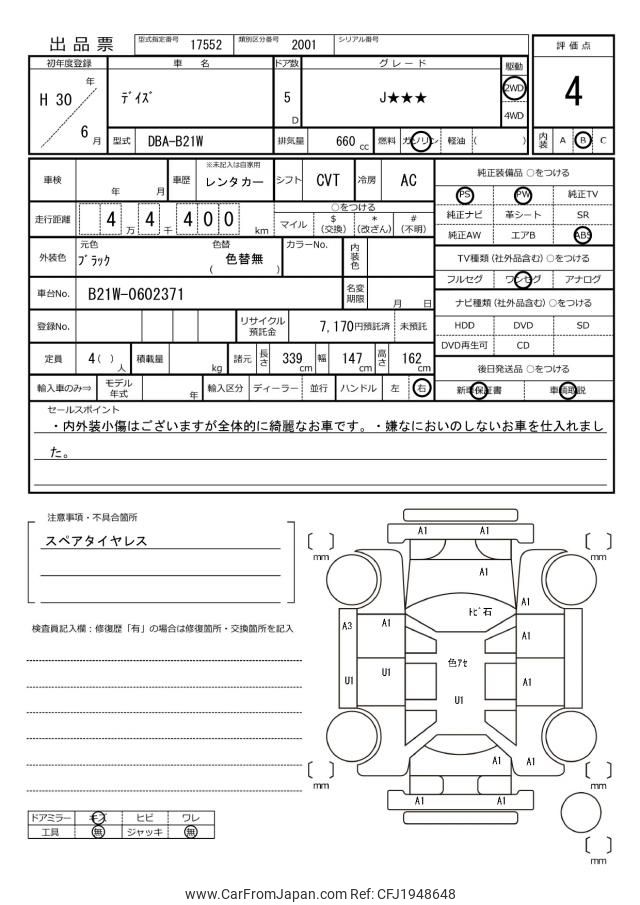 出品票 型式指定番号 17552 類別区分番号 2001 シリアル番号
評価点
4
内装 A B C
初年度登録 車名 ドア数 グレード 駆動
H 30 年 6 月 ﾃﾞｲｽﾞ 5 D J★★★ 2WD 4WD
型式 DBA-B21W 排気量 660 cc 燃料 ガソリン 軽油 ( )
車検 年 月 車歴 ※未記入は自家用 レンタカー シフト CVT 冷房 AC
純正装備品 ○をつける
PS PW 純正TV
純正ナビ 革シート SR
純正AW エアB ABS
走行距離 4 万 4 千 4 0 0 km ○をつける
マイル $ (交換) * (改ざん) # (不明)
外装色 元色 ﾌﾞﾗｯｸ 色替 ( 色替無 ) カラーNo. 内装色
TV種類 (社外品含む) ○をつける
フルセグ ワンセグ アナログ
車台No. B21W-0602371 名変期限 月 日
ナビ種類 (社外品含む) ○をつける
HDD DVD SD
DVD再生可 CD
登録No. リサイクル預託金 7,170円預託済 未預託
定員 4 ( ) 人 積載量 kg 諸元 長さ 339 cm 幅 147 cm 高さ 162 cm
後日発送品 ○をつける
新車保証書 車輌取説
輸入車のみ⇒ モデル年式 年 輸入区分 ディーラー 並行 ハンドル 左 右
セールスポイント
・内外装小傷はございますが全体的に綺麗なお車です。・嫌なにおいのしないお車を仕入れまし
た。
注意事項・不具合箇所
スペアタイヤレス
検査員記入欄：修復歴「有」の場合は修復箇所・交換箇所を記入
ドアミラー キズ ヒビ ワレ
工具 無 ジャッキ 無
A1 A1
mm mm
A1
A1
ﾄﾋﾞ石
A3 A1 A1
色ｱｾ
U1 U1 A1
U1
A1 A1
mm mm
A1 A1
mm
www.CarFromJapan.com Ref: CFJ1948648